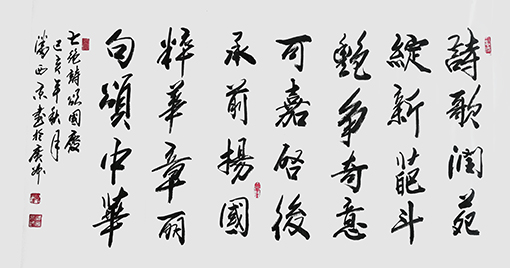 詩歌潤苑
綻新葩斗
艷争奇意
可嘉啓後
承前揚國
粹華章丽
句頌中華
七絕詩頌國慶
己亥年秋月
潘西京書於